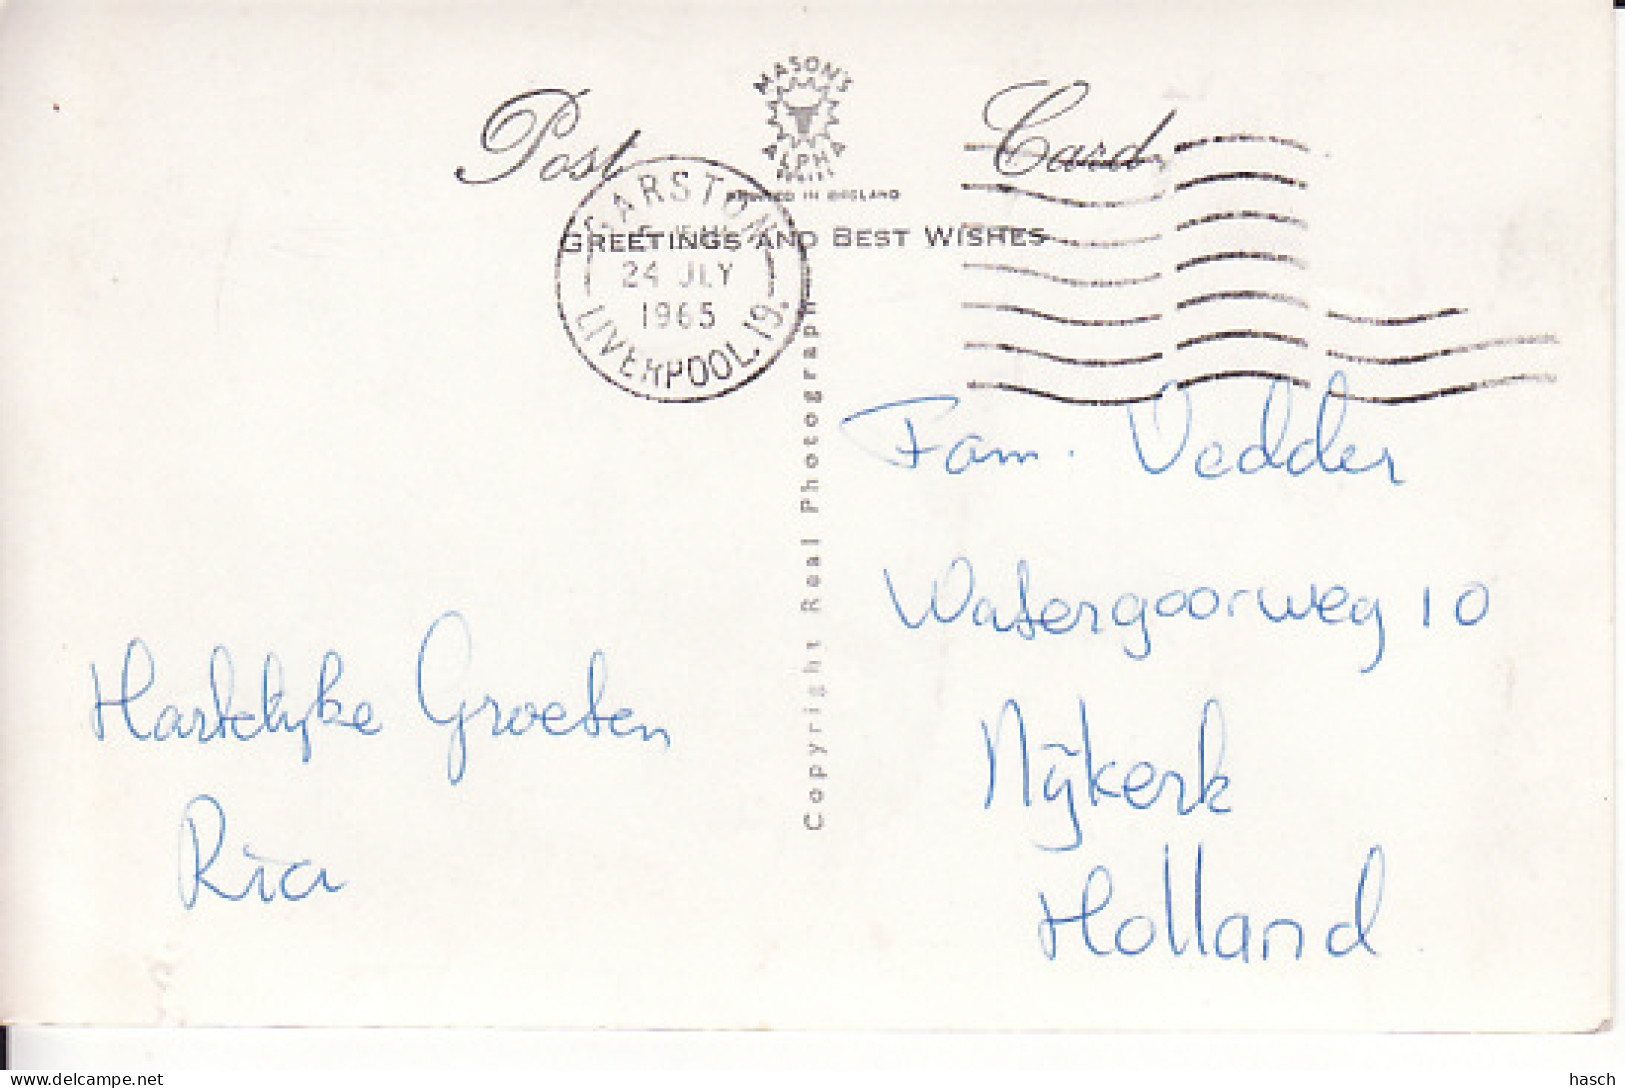 MASON'S
ALPHA
SERIES
Post Card
PRINTED IN ENGLAND
GREETINGS AND BEST WISHES
GARSTON
24 JLY
1965
LIVERPOOL.19.
Copyright Real Photograph
Fam. Vedder
Watergoorweg 10
Nijkerk
Holland
Hartelijke Groeten
Ria
hasch